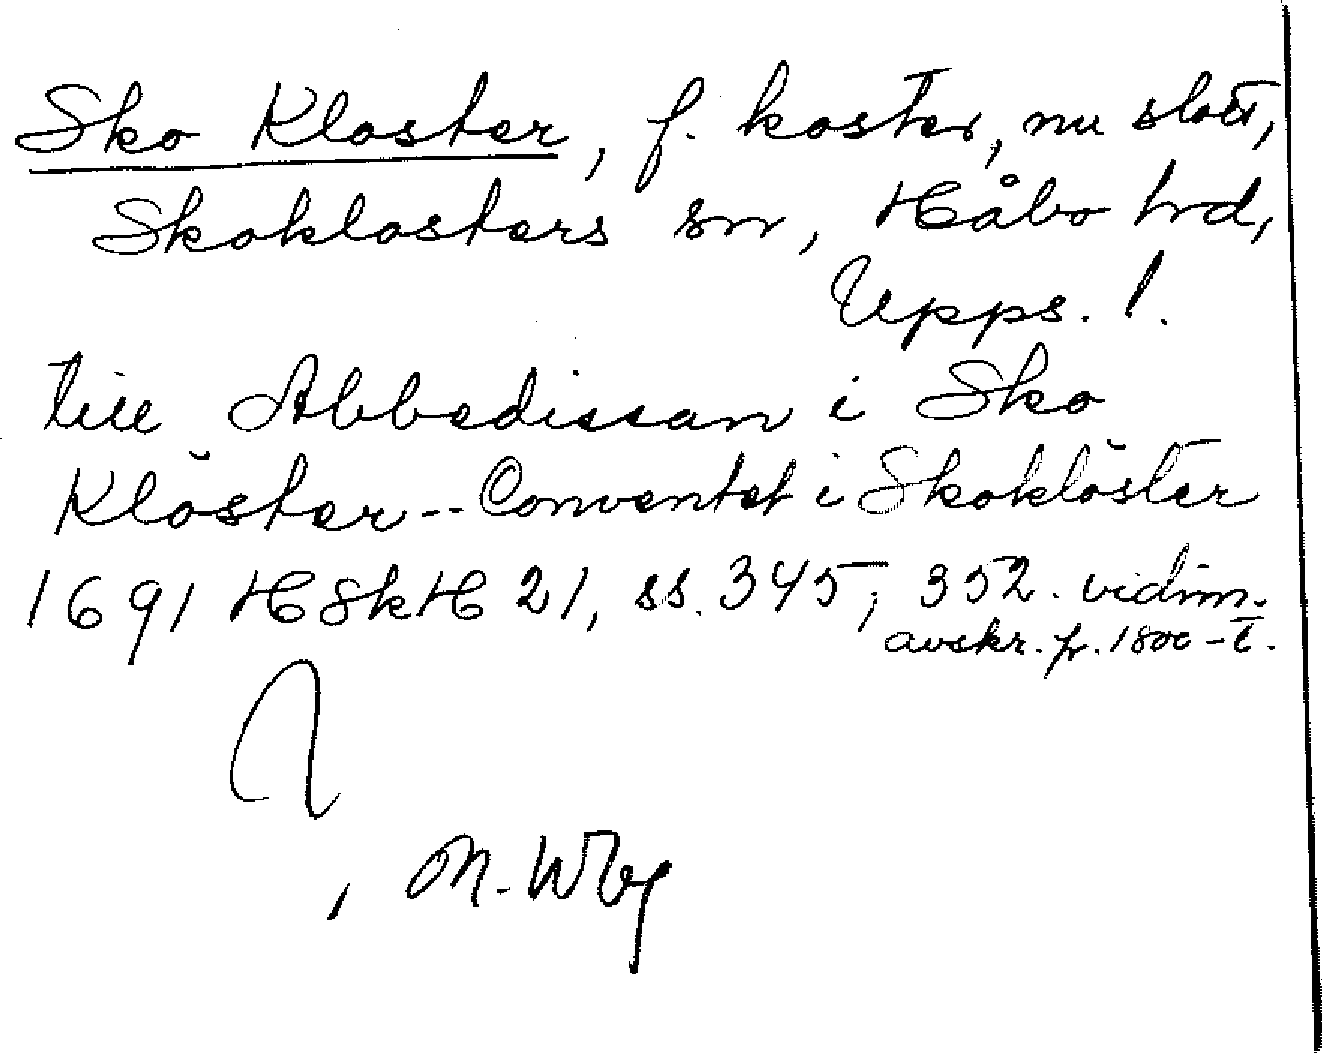 Sko Kloster, f. koster, nu slott,
Skoklosters sn, Håbo hrd,
Upps. l.
till Abbedissan i Sko
Klŏster -- Conventet i Skoklŏster
1691 HSkH 21, ss. 345, 352. vidim.
avskr. fr. 1800-t.
M. Wbg